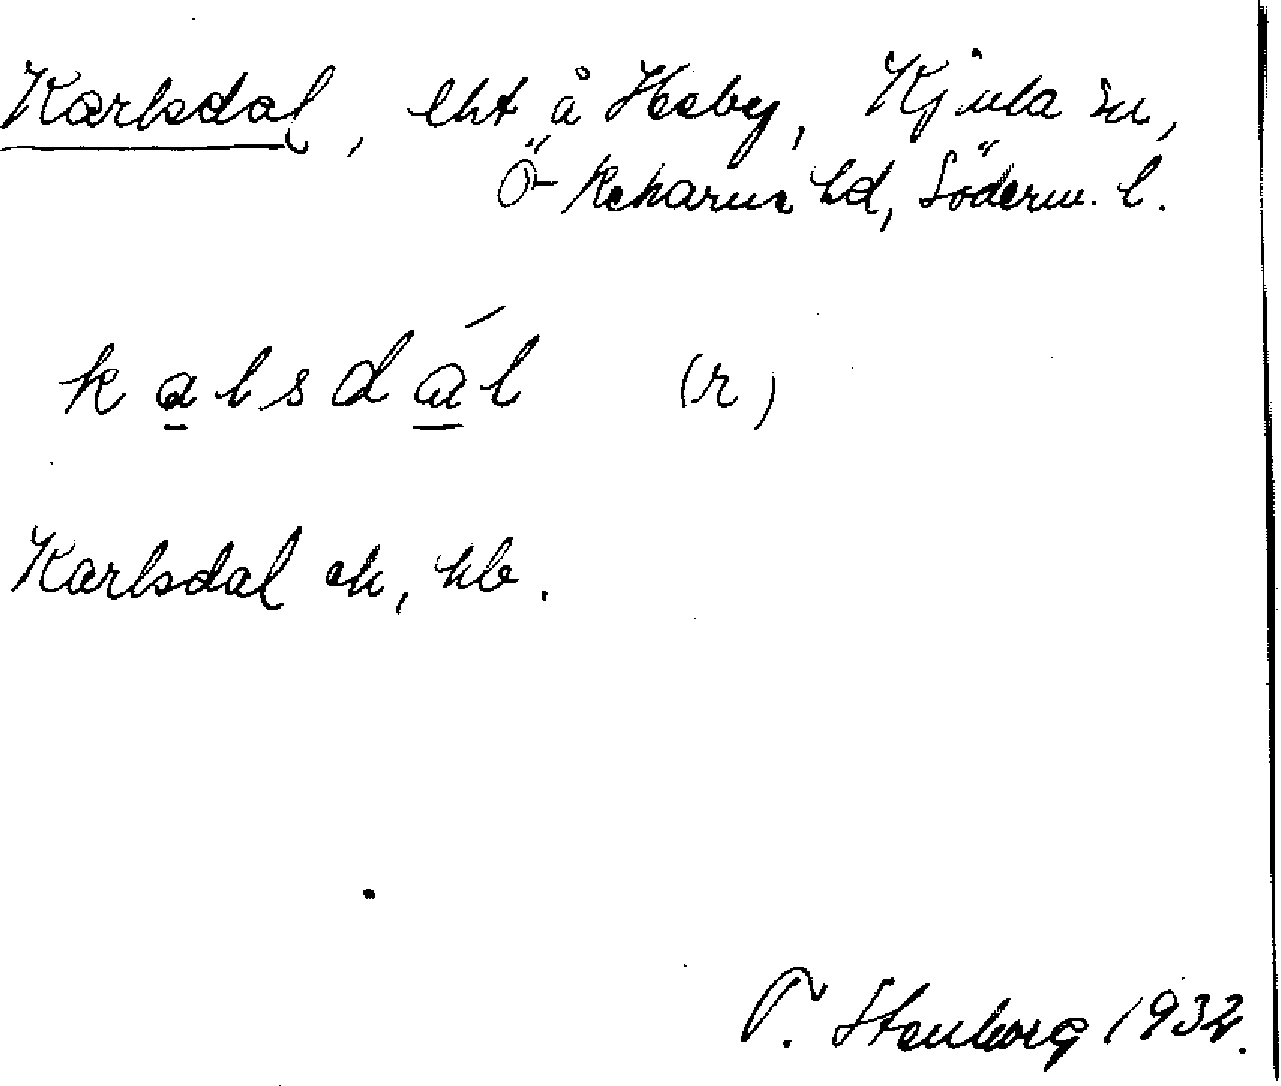 Karlsdal, lht å Hesby, Kjula sn,
Ö Rekarne hd, Söderm. l.
kalsdál (r)
Karlsdal ek, kb.
T. Stenborg 1932.